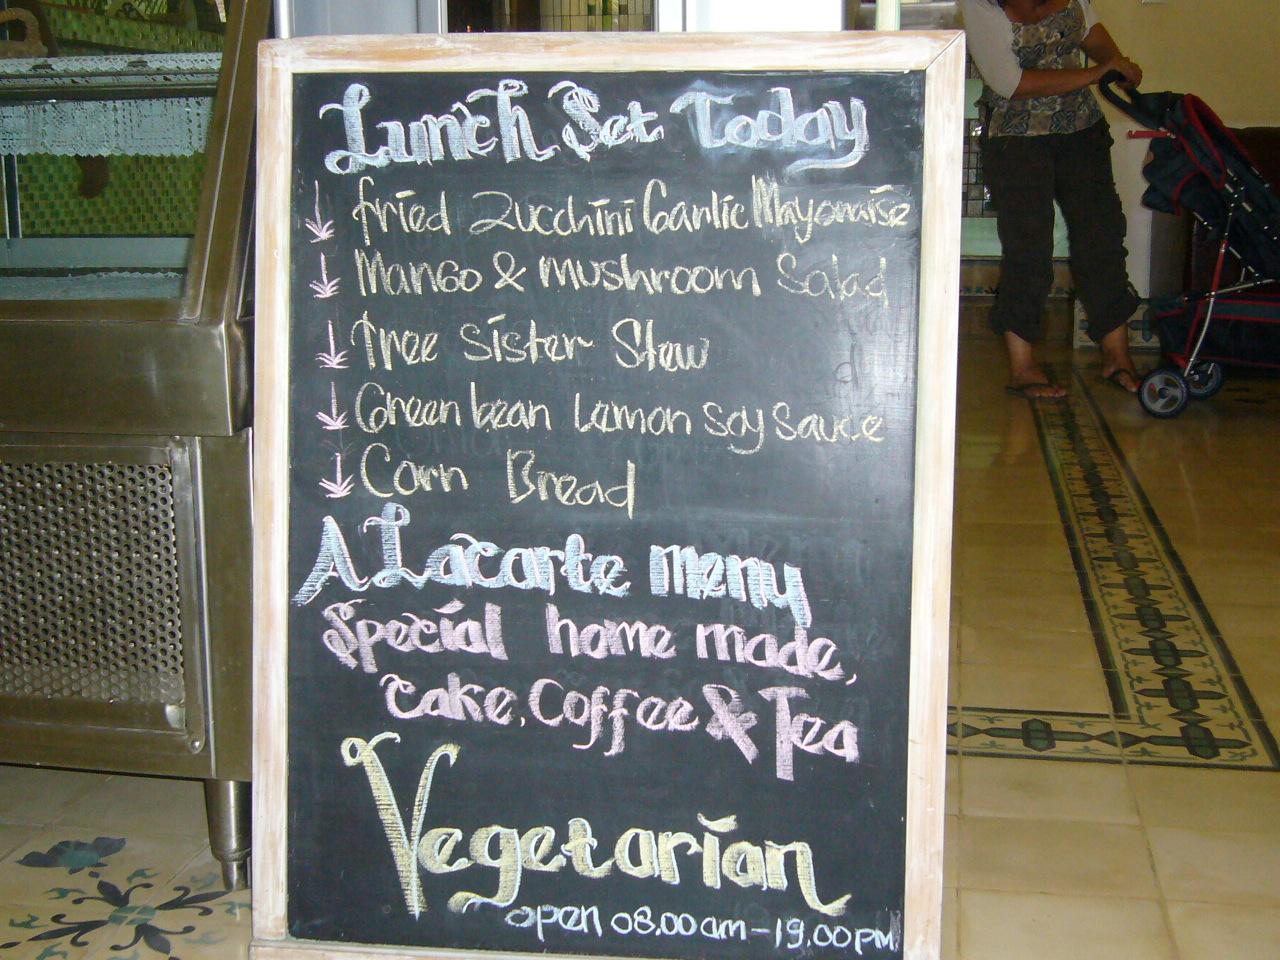 Lunch Set Today
fried Zucchini Garlic Mayonaise
Mango & mushroom Salad
Tree Sister Stew
Green bean Lemon soy sauce
Corn Bread
A Lacarte menu
Special home made,
cake, Coffee & Tea
Vegetarian
open 08.00 am - 19.00 PM